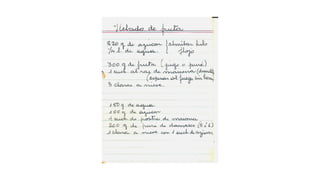 Helado de fruta
320 g de azucar | almibar hilo
½ l. de agua. | flojo
300 g de fruta (jugo o puré)
1 cuch al ras de maicena
(espesar al fuego sin
3 claras a nieve.
150 g de agua
100 g de azucar
1 cuch de postre de maicena
260 g de puré de damascos (3 ó 4)
1 clara a nieve con 1 cuch de azúcar